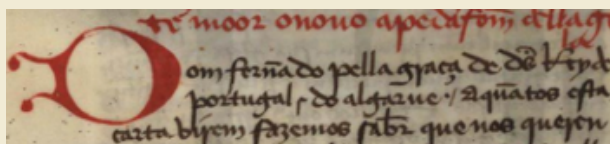 te moor o novo a pedaſom dellag
Dom fernãdo pella graça de ds̃ Rey de
portugal ⁊ do algarue ⁊ A quãtos esta
carta birem fazemos saber que nos queren